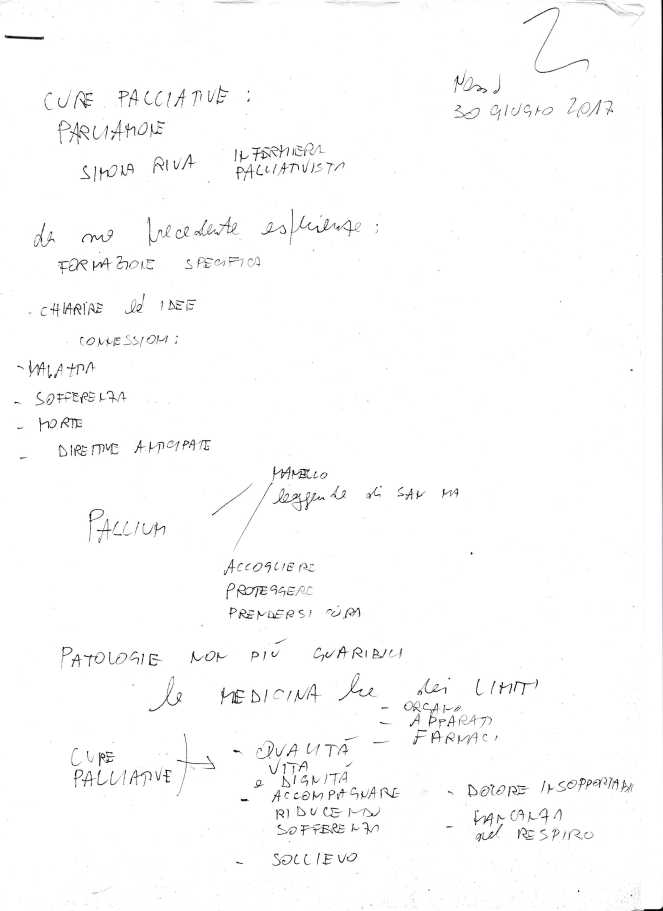 2
CURE PALLIATIVE :
30 GIUGNO 2017
PARLIAMONE
SIMONA RIVA INFERMIERA
PALLIATIVISTA
da mia precedente esperienza :
FORMAZIONE SPECIFICA
. CHIARIRE le IDEE
CONNESSIONI :
- MALATTIA
- SOFFERENZA
- MORTE
- DIRETTIVE ANTICIPATE
MANTELLO
leggenda di SAN MA
PALLIUM
ACCOGLIERE
PROTEGGERE
PRENDERSI CURA
PATOLOGIE NON PIÙ GUARIBILI
la MEDICINA ha dei LIMITI
- ORGANO
- APPARATI
- FARMACI
CURE
PALLIATIVE
- QUALITÀ
VITA
e DIGNITÀ
- ACCOMPAGNARE
RIDUCENDO
SOFFERENZA
- SOLLIEVO
- DOLORE INSOPPORTABI
- MANCANZA
nel RESPIRO